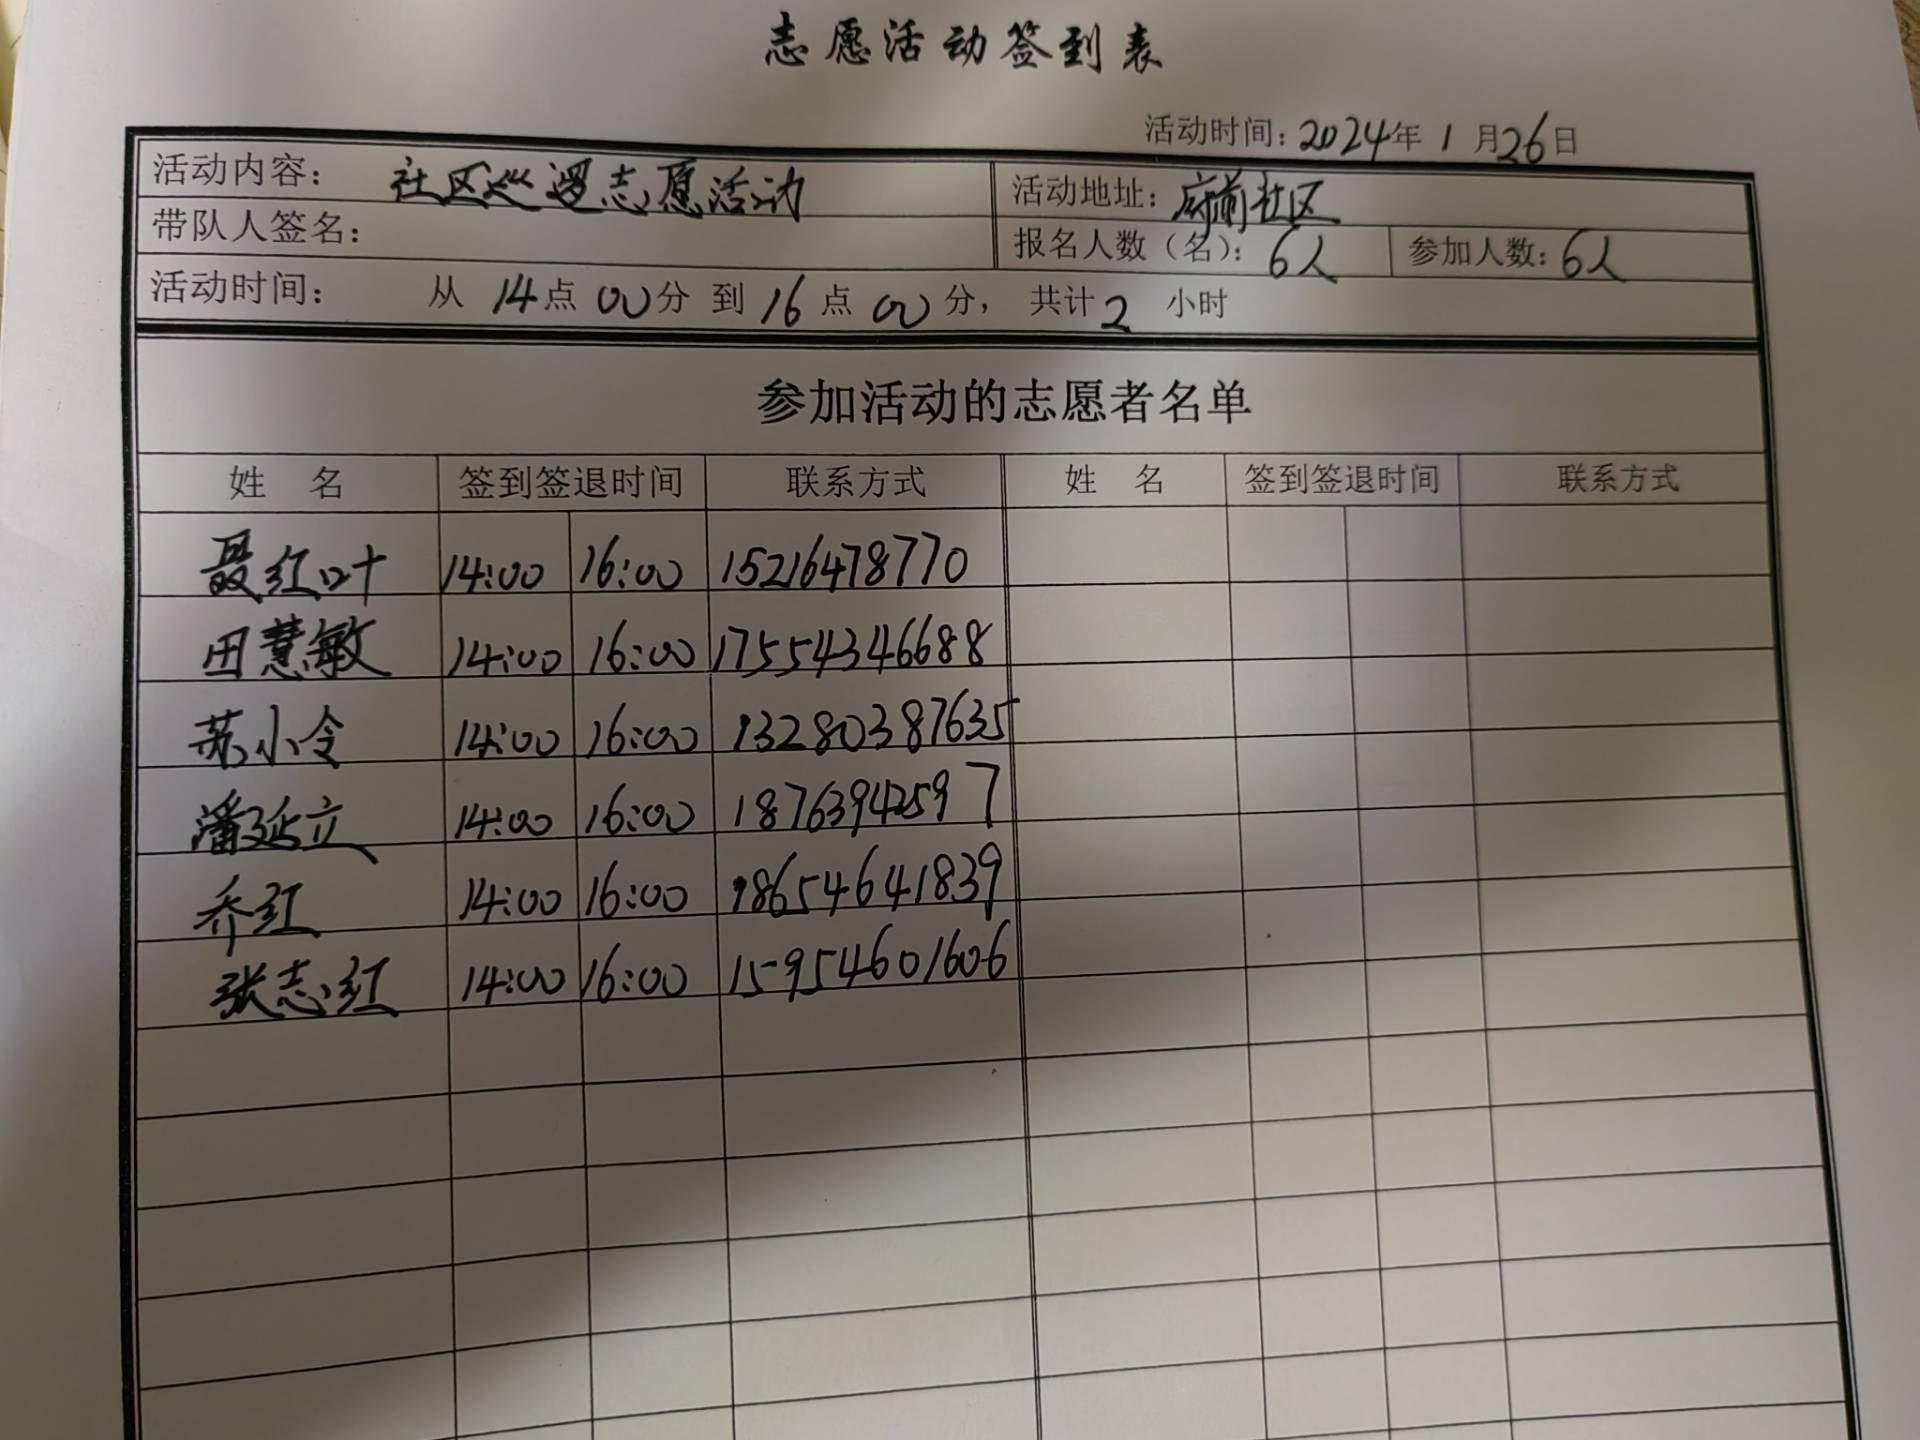 志愿活动签到表
活动时间：2024年1月26日
活动内容：社区巡逻志愿活动 活动地址：府前社区
带队人签名： 报名人数（名）：6人 参加人数：6人
活动时间： 从14点00分到16点00分，共计2小时
参加活动的志愿者名单
姓 名 签到签退时间 联系方式 姓 名 签到签退时间 联系方式
聂红叶 14:00 16:00 15216478770
田慧敏 14:00 16:00 17554346688
苏小令 14:00 16:00 13280387635
潘延立 14:00 16:00 18763942597
乔红 14:00 16:00 18654641839
张志红 14:00 16:00 15954601606